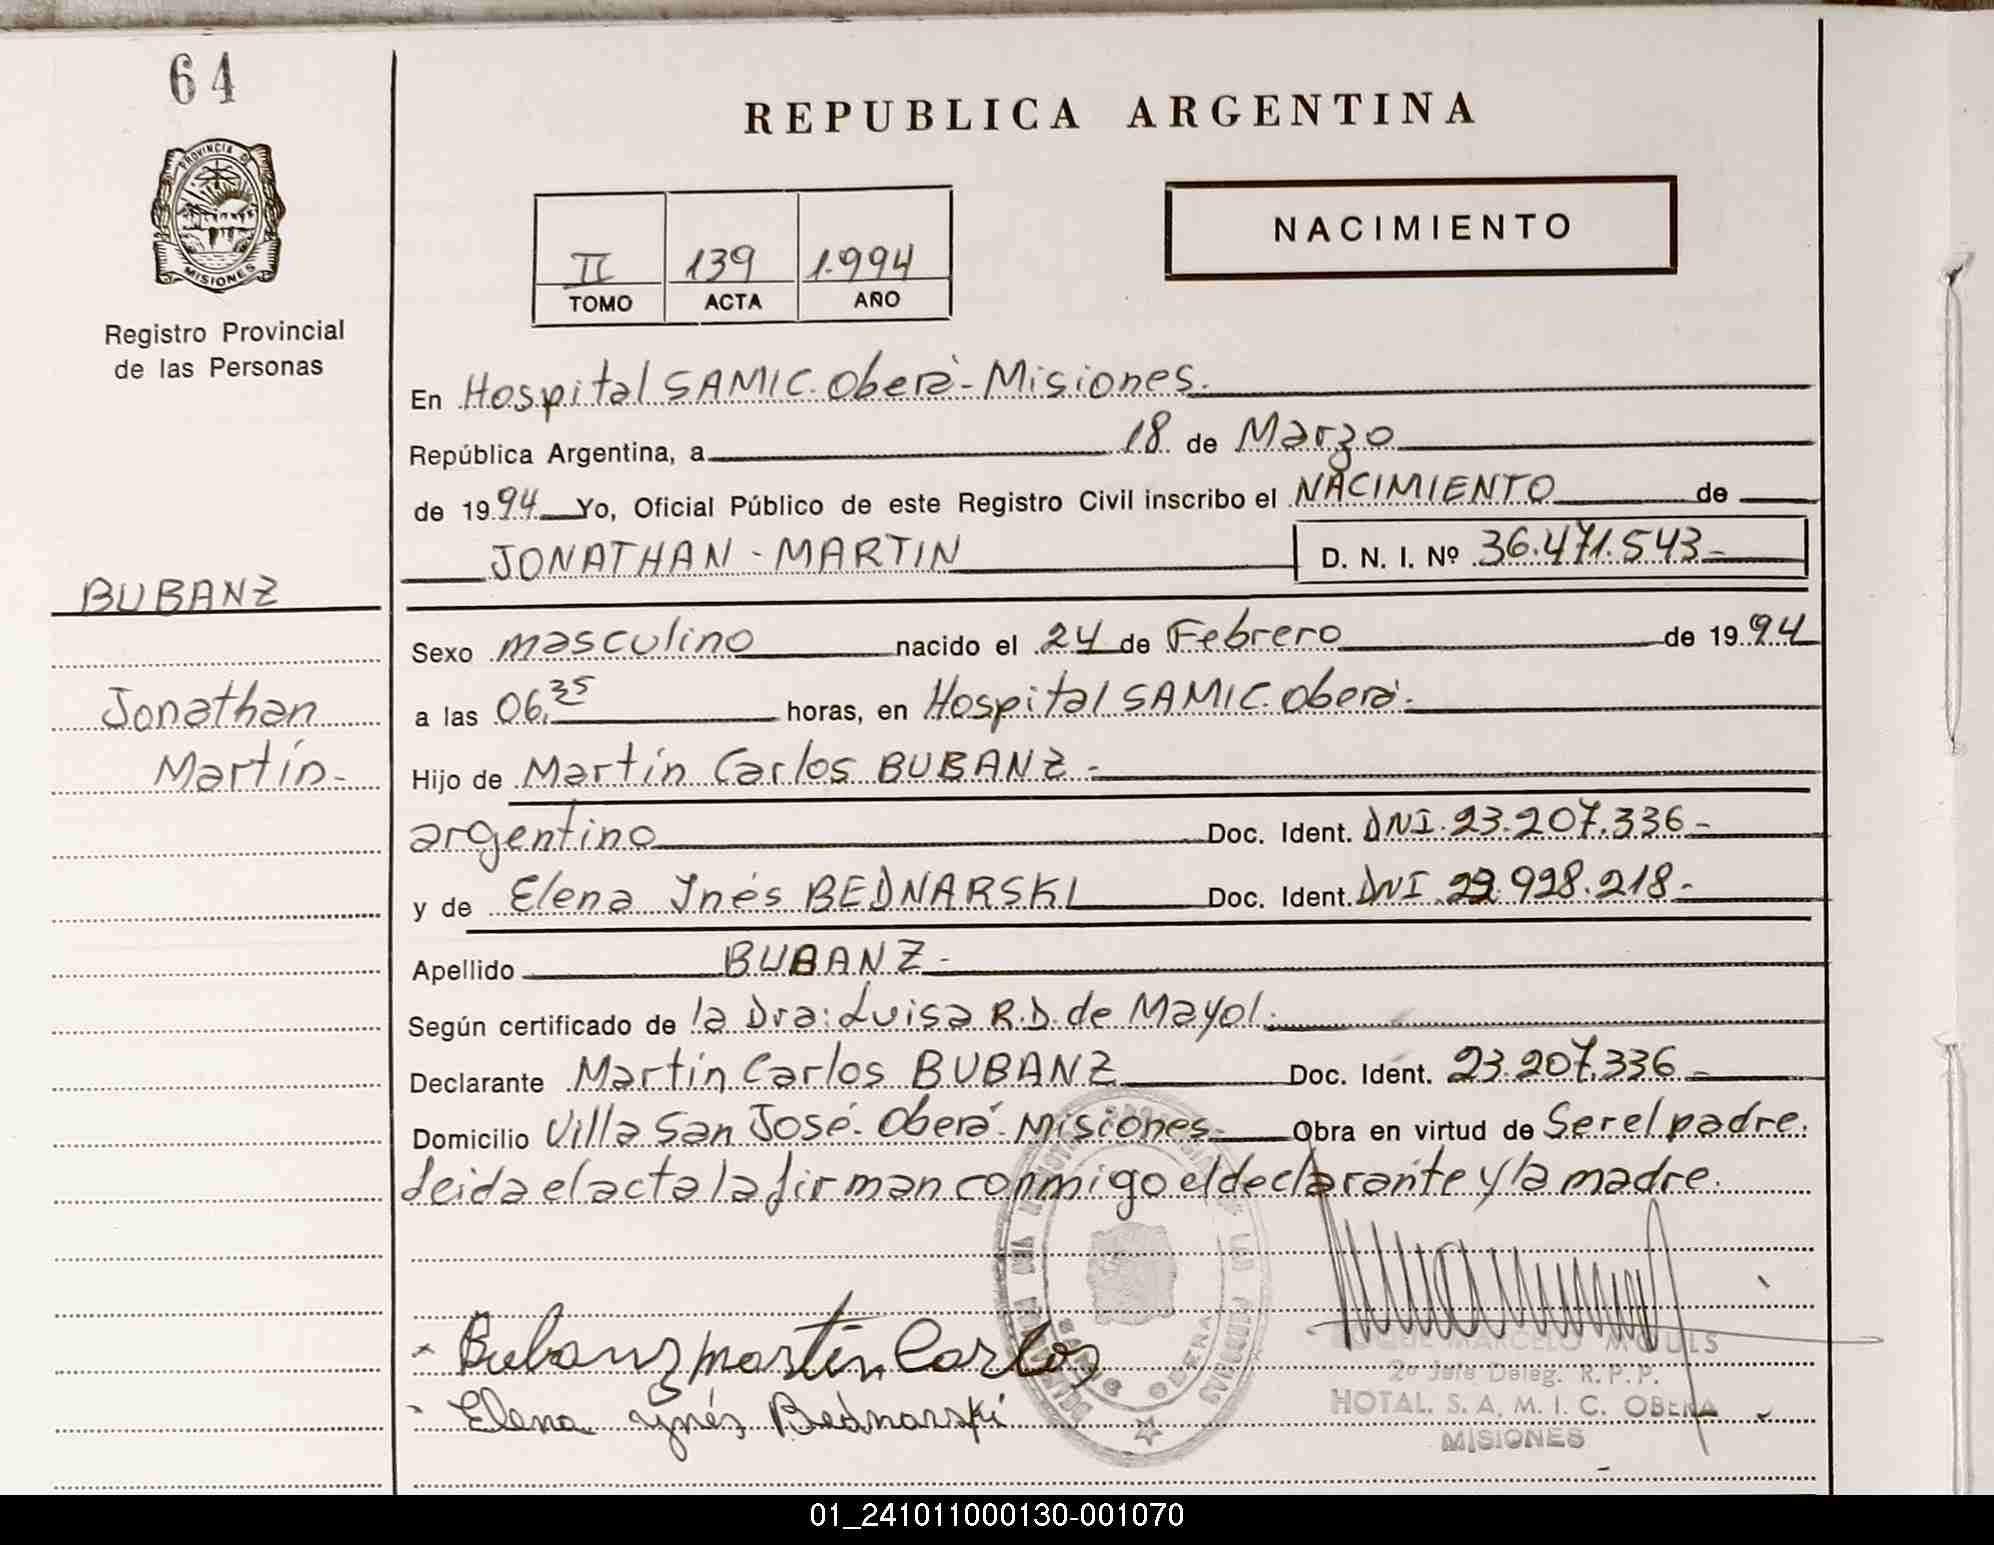 64
PROVINCIA DE
MISIONES
Registro Provincial
de las Personas
REPUBLICA ARGENTINA
NACIMIENTO
II 139 1.994
TOMO ACTA AÑO
En Hospital SAMIC. Oberá - Misiones.
República Argentina, a 18 de Marzo
de 1994 Yo, Oficial Público de este Registro Civil inscribo el NACIMIENTO de
JONATHAN - MARTIN D. N. I. Nº 36.471.543-
BUBANZ
Jonathan
Martín-
Sexo masculino nacido el 24 de Febrero de 1994
a las 06,35 horas, en Hospital SAMIC. Oberá.
Hijo de Martín Carlos BUBANZ -
argentino Doc. Ident. DNI. 23.207.336-
y de Elena Inés BEDNARSKI Doc. Ident. DNI 928.218-
Apellido BUBANZ -
Según certificado de la Dra: Luisa R.D. de Mayol.
Declarante Martín Carlos BUBANZ Doc. Ident. 23.207.336-
Domicilio Villa San José. Oberá - Misiones- Obra en virtud de Ser el padre.
Leida el acta la firman conmigo el declarante y la madre.
- Bubanz martín Carlos
- Elena ynés Bednarski
MARCELO
2º Jefe Deleg. R.P.P.
HOTAL. S. A. M. I. C. OBERA
MISIONES
OBERA
01_241011000130-001070